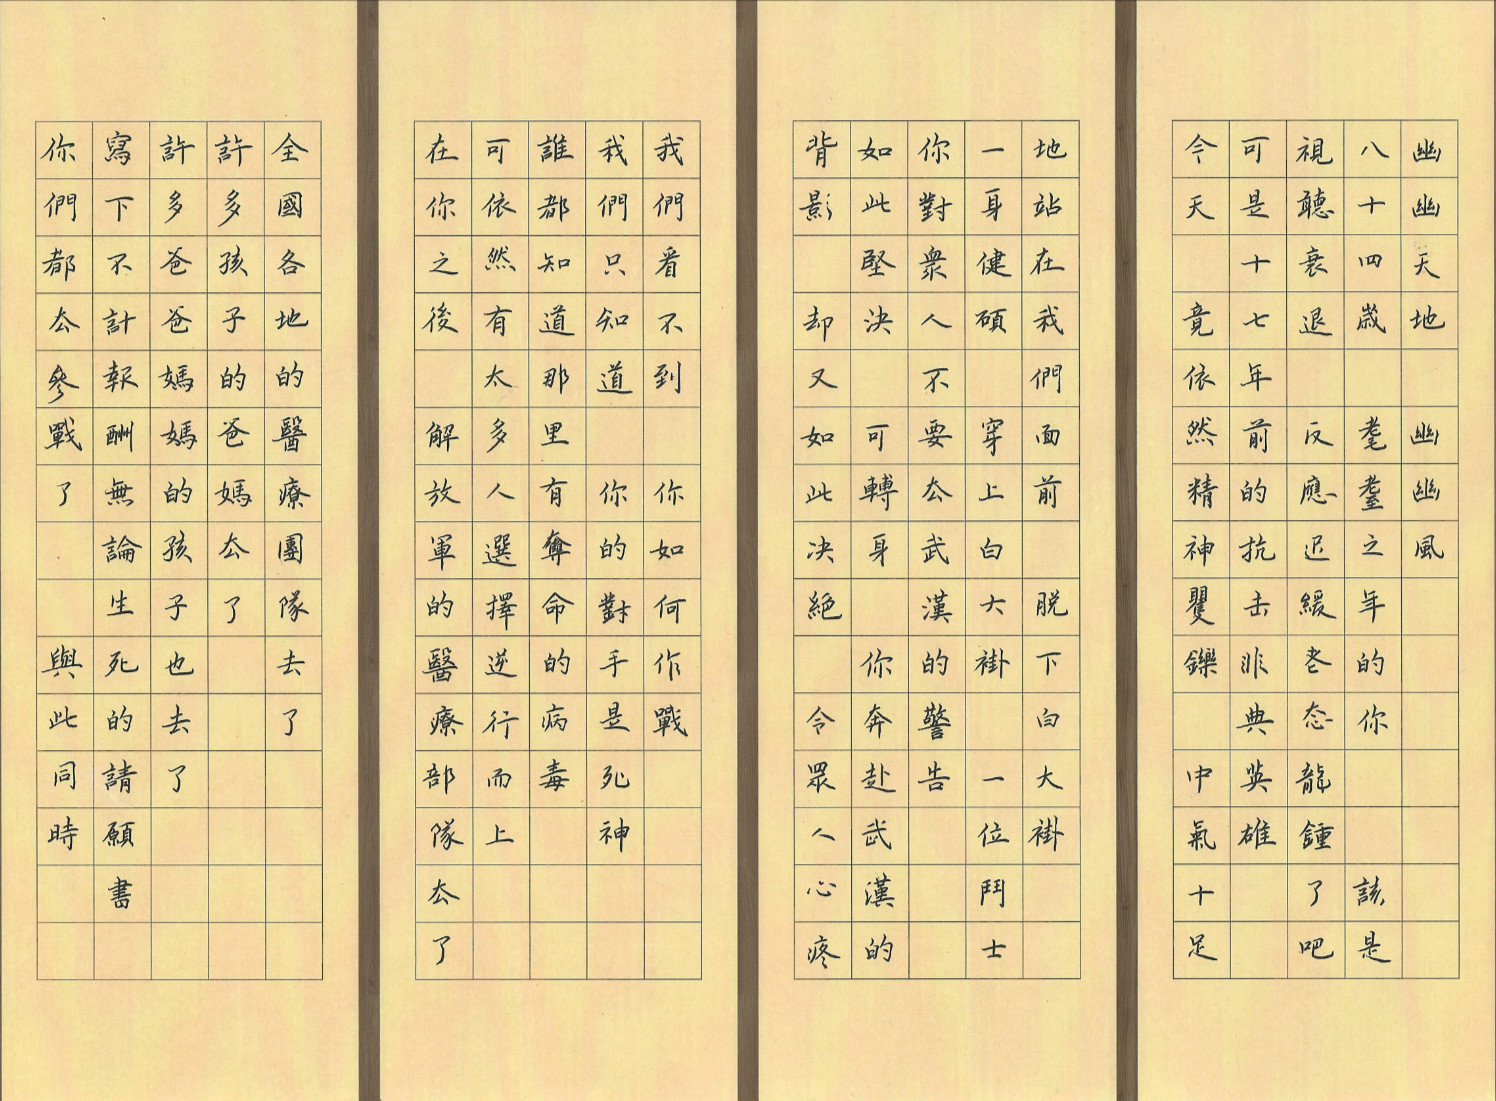 幽幽天地 幽幽風
八十四歲 耄耋之年的你 該是
視聽衰退 反應迟緩老态龍鍾了吧
可是十七年前的抗击非典英雄
今天 竟依然精神矍鑠 中氣十足
地站在我們面前 脱下白大褂
一身健碩 穿上白大褂 一位鬥士
你對衆人不要厺武漢的警告
如此堅決 可轉身 你奔赴武漢的
背影 却又如此决絶 令眾人心疼
我們看不到 你如何作戰
我們只知道 你的對手是死神
誰都知道那里有奪命的病毒
可依然有太多人選擇逆行而上
在你之後 解放軍的醫療部隊厺了
全國各地的醫療團隊去了
許多孩子的爸媽厺了
許多爸爸媽媽的孩子也去了
寫下不計報酬無論生死的請願書
你們都厺參戰了 與此同時